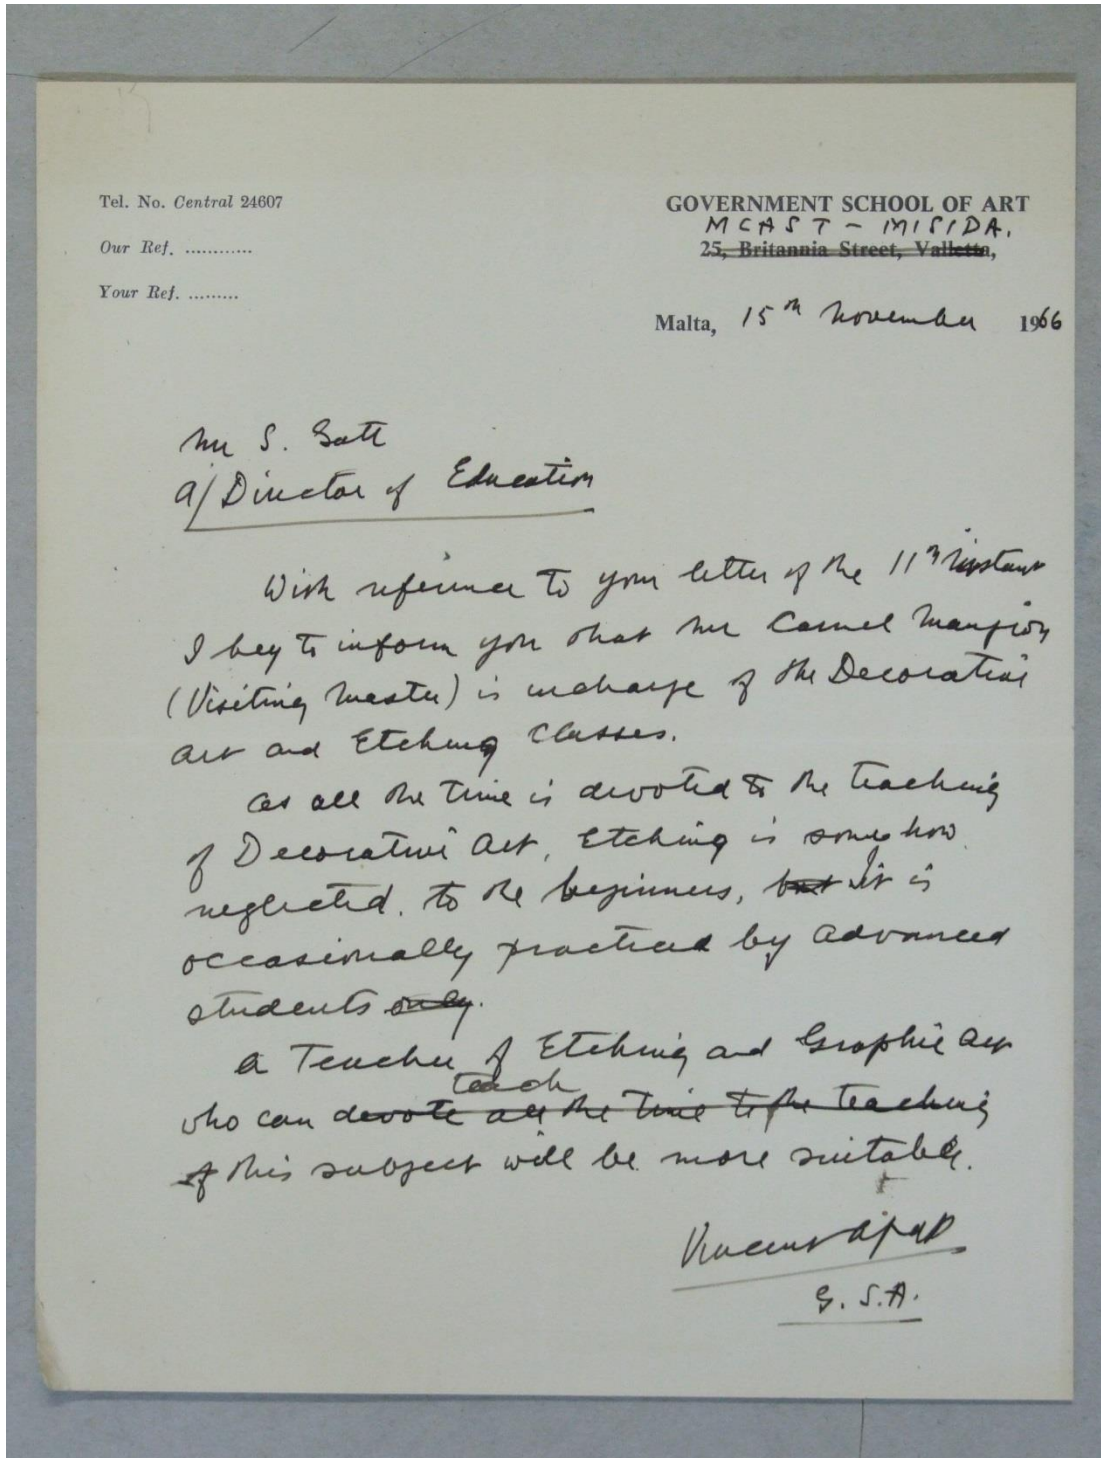 Tel. No. Central 24607
Our Ref. ............
Your Ref. .........
GOVERNMENT SCHOOL OF ART
MCAST - MISIDA.
25, Britannia Street, Valletta,
Malta, 15th November 1966
Mr S. Gatt
a/Director of Education
With reference to your letter of the 11th instant
I beg to inform you that Mr Carmel Mangion
(Visiting Master) is incharge of the Decorative
Art and Etching Classes.
As all the time is devoted to the teaching
of Decorative Art, Etching is somehow
neglected. to the beginners, but It is
occasionally practiced by Advanced
students only.
A Teacher of Etching and Graphic Art
teach
who can devote all the time to the teaching
of this subject will be more suitable.
Vincent Apap
G. S.A.